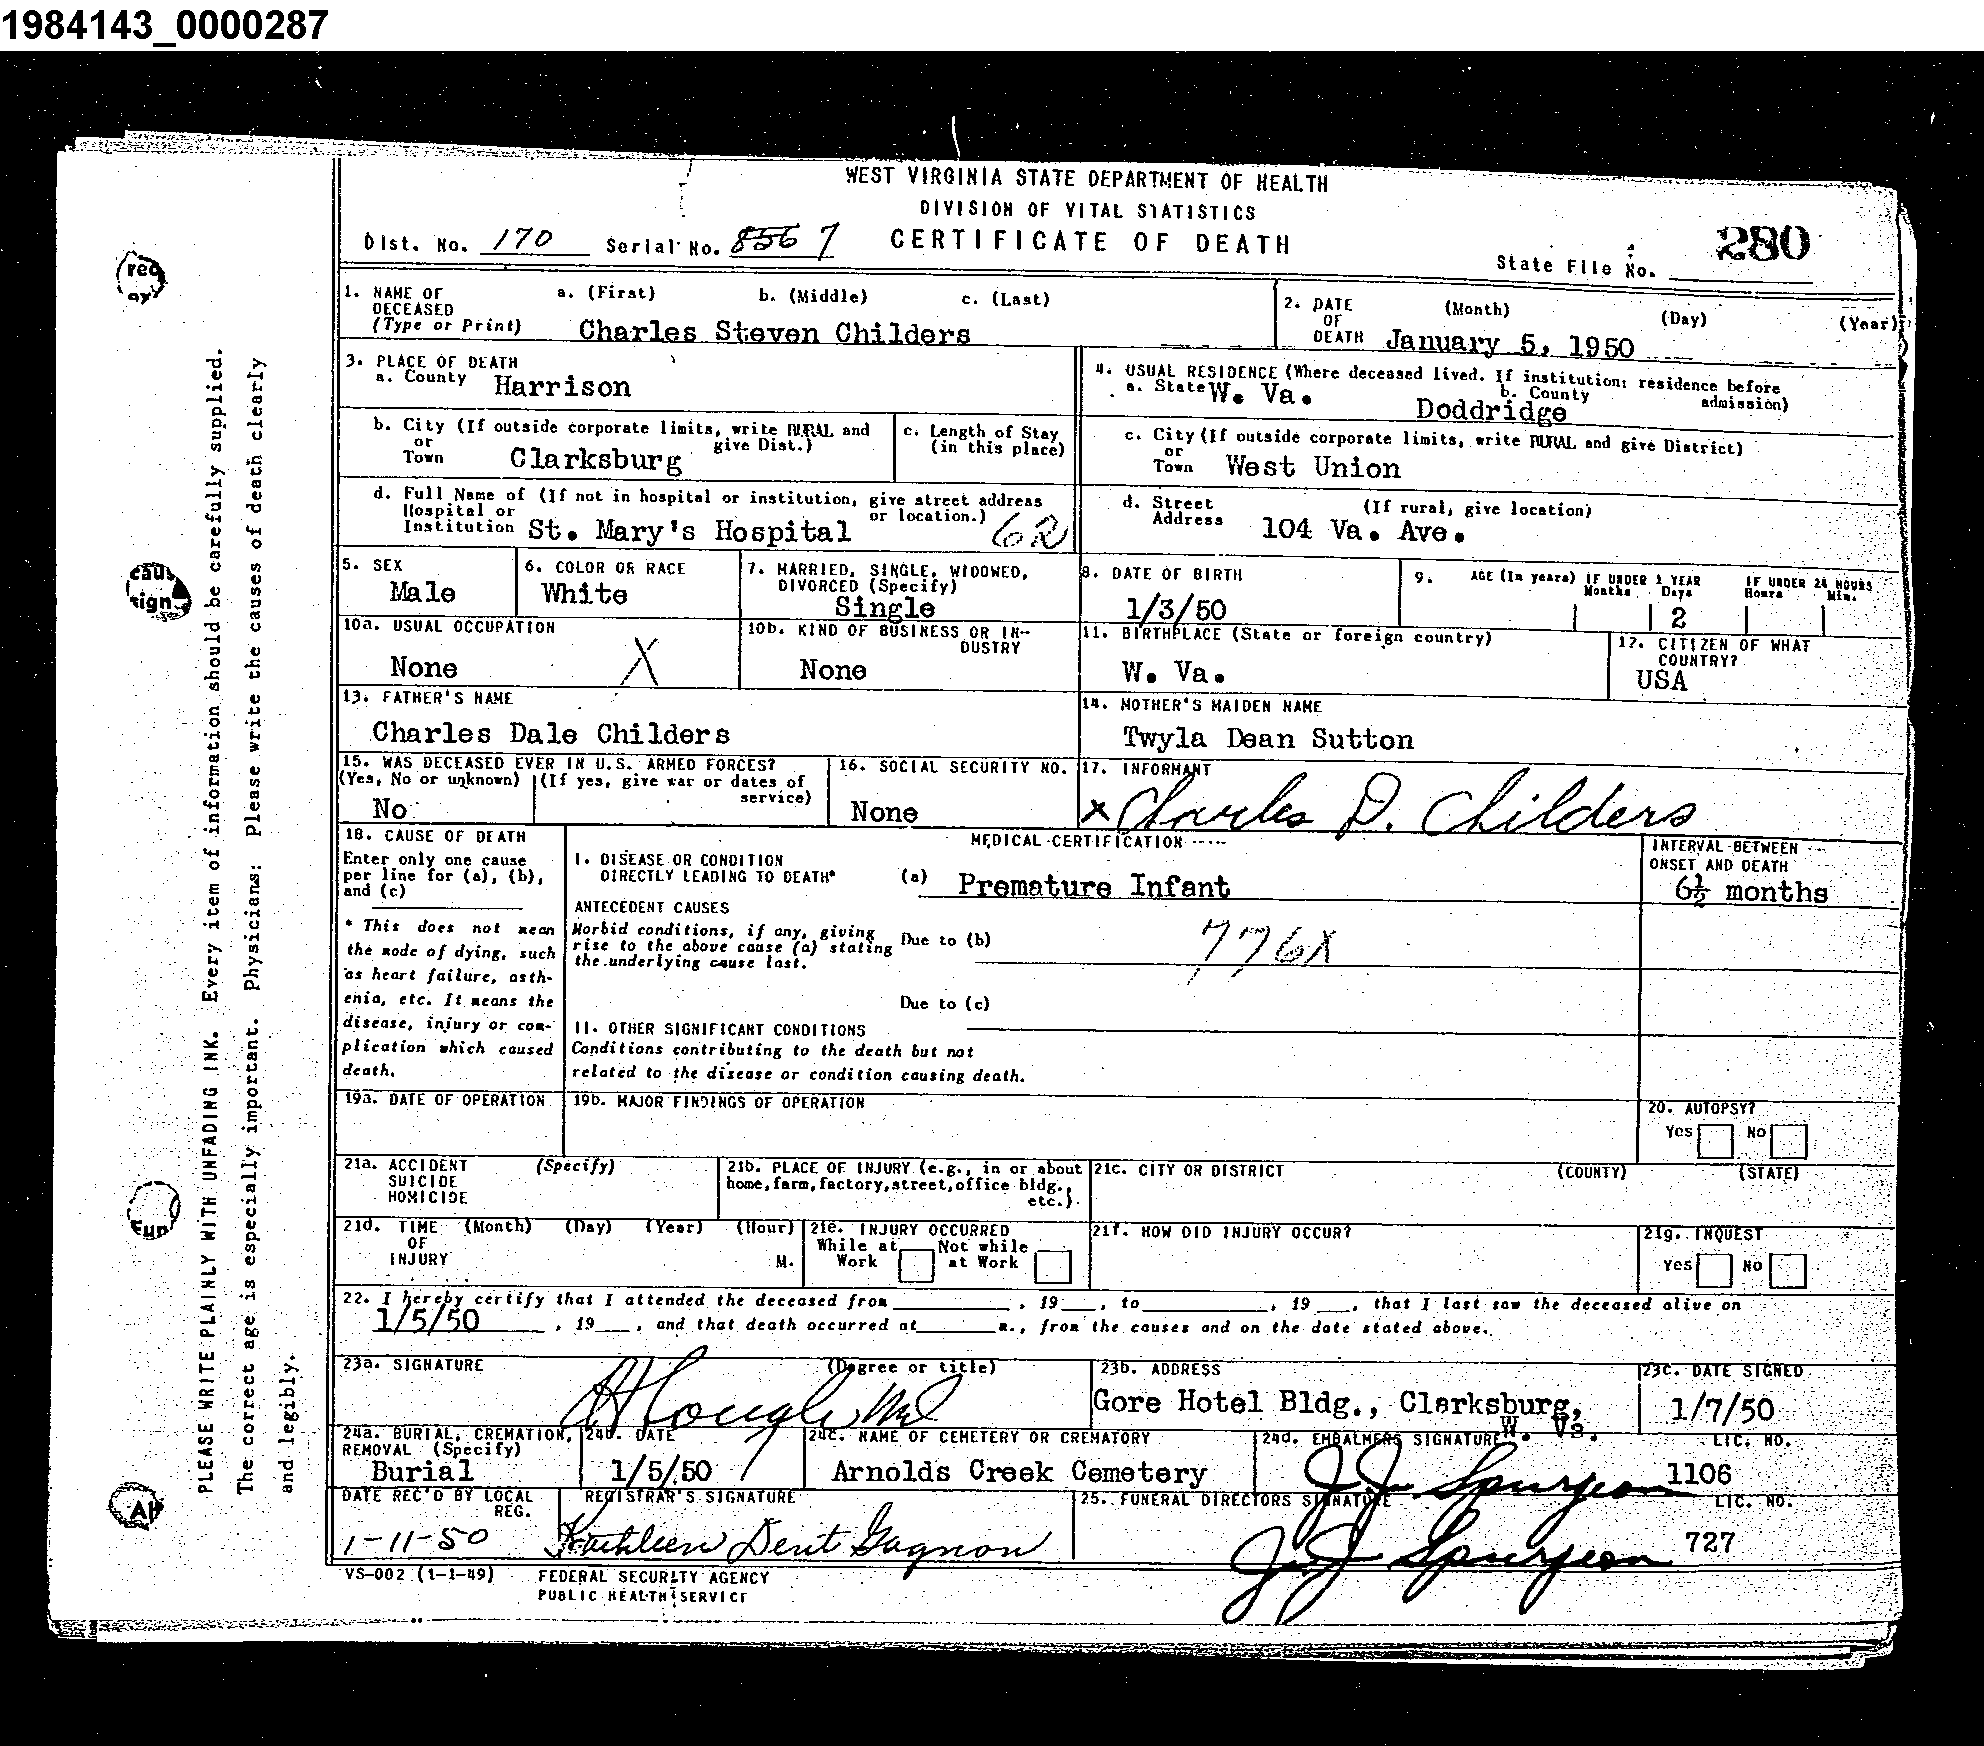 1984143_0000287
WEST VIRGINIA STATE DEPARTMENT OF HEALTH
DIVISION OF VITAL STATISTICS
Dist. No. 170 Serial No. 856 7 CERTIFICATE OF DEATH
State File No. 280
1. NAME OF DECEASED (Type or Print) a. (First) b. (Middle) c. (Last)
Charles Steven Childers
2. DATE OF DEATH (Month) (Day) (Year)
January 5, 1950
3. PLACE OF DEATH
a. County Harrison
4. USUAL RESIDENCE (Where deceased lived. If institution: residence before admission)
a. State W. Va. b. County Doddridge
b. City (If outside corporate limits, write RURAL and give Dist.)
or Town Clarksburg
c. Length of Stay (in this place)
c. City (If outside corporate limits, write RURAL and give District)
or Town West Union
d. Full Name of (If not in hospital or institution, give street address or location.)
Hospital or Institution St. Mary's Hospital 62
d. Street Address (If rural, give location)
104 Va. Ave.
5. SEX Male
6. COLOR OR RACE White
7. MARRIED, SINGLE, WIDOWED, DIVORCED (Specify) Single
8. DATE OF BIRTH 1/3/50
9. AGE (In years) IF UNDER 1 YEAR Months Days 2 IF UNDER 24 HOURS Hours Min.
10a. USUAL OCCUPATION None X
10b. KIND OF BUSINESS OR INDUSTRY None
11. BIRTHPLACE (State or foreign country) W. Va.
12. CITIZEN OF WHAT COUNTRY? USA
13. FATHER'S NAME
Charles Dale Childers
14. MOTHER'S MAIDEN NAME
Twyla Dean Sutton
15. WAS DECEASED EVER IN U.S. ARMED FORCES?
(Yes, No or unknown) (If yes, give war or dates of service)
No
16. SOCIAL SECURITY NO. None
17. INFORMANT
x Charles D. Childers
18. CAUSE OF DEATH
Enter only one cause per line for (a), (b), and (c)
* This does not mean the mode of dying, such as heart failure, asthenia, etc. It means the disease, injury or complication which caused death.
MEDICAL CERTIFICATION
I. DISEASE OR CONDITION DIRECTLY LEADING TO DEATH* (a) Premature Infant
INTERVAL BETWEEN ONSET AND DEATH
6½ months
ANTECEDENT CAUSES
Morbid conditions, if any, giving rise to the above cause (a) stating the underlying cause last.
Due to (b) 776X
Due to (c)
II. OTHER SIGNIFICANT CONDITIONS
Conditions contributing to the death but not
related to the disease or condition causing death.
19a. DATE OF OPERATION
19b. MAJOR FINDINGS OF OPERATION
20. AUTOPSY?
Yes No
21a. ACCIDENT SUICIDE HOMICIDE (Specify)
21b. PLACE OF INJURY (e.g., in or about home, farm, factory, street, office bldg., etc.)
21c. CITY OR DISTRICT (COUNTY) (STATE)
21d. TIME OF INJURY (Month) (Day) (Year) (Hour) M.
21e. INJURY OCCURRED
While at Work Not while at Work
21f. HOW DID INJURY OCCUR?
21g. INQUEST
Yes No
22. I hereby certify that I attended the deceased from , 19 , to , 19 , that I last saw the deceased alive on
1/5/50 , 19 , and that death occurred at m., from the causes and on the date stated above.
23a. SIGNATURE (Degree or title)
23b. ADDRESS
Gore Hotel Bldg., Clarksburg, W. Va.
23c. DATE SIGNED
1/7/50
24a. BURIAL, CREMATION, REMOVAL (Specify)
Burial
24b. DATE
1/5/50
24c. NAME OF CEMETERY OR CREMATORY
Arnolds Creek Cemetery
24d. EMBALMERS SIGNATURE LIC. NO.
J. J. Spurgeon 1106
DATE REC'D BY LOCAL REG.
1-11-50
REGISTRAR'S SIGNATURE
Kathleen Dent Gagnon
25. FUNERAL DIRECTORS SIGNATURE LIC. NO.
J. J. Spurgeon 727
VS-002 (1-1-49) FEDERAL SECURITY AGENCY
PUBLIC HEALTH SERVICE
PLEASE WRITE PLAINLY WITH UNFADING INK. Every item of information should be carefully supplied.
The correct age is especially important. Physicians: Please write the causes of death clearly
and legibly.